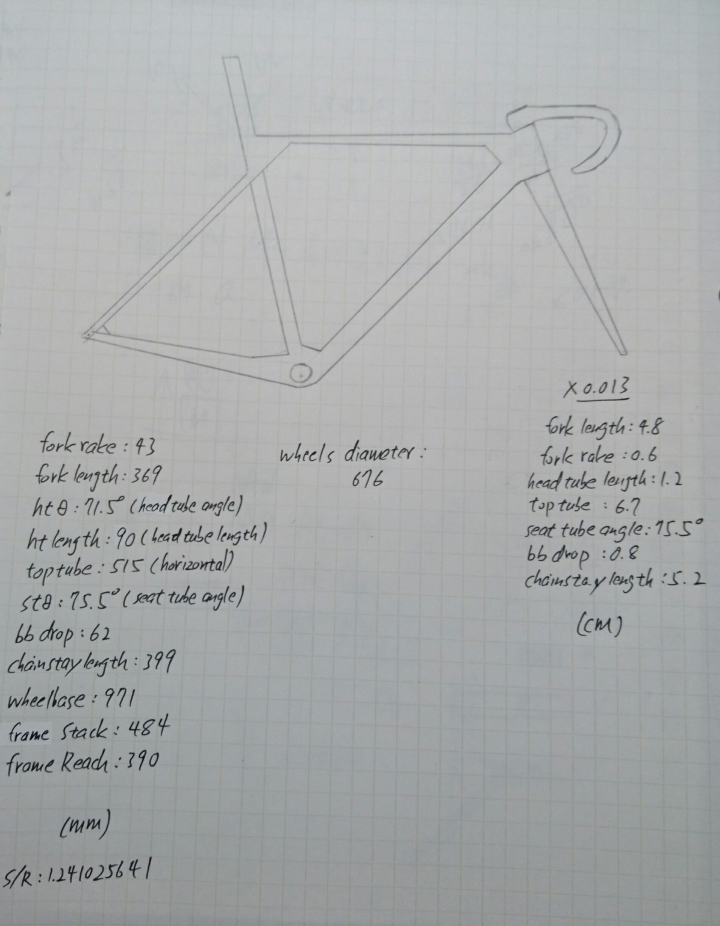 X 0.013
fork rake : 43
fork length : 369
ht θ : 71.5° (head tube angle)
ht length : 90 (head tube length)
top tube : 515 (horizontal)
st θ : 75.5° (seat tube angle)
bb drop : 62
chainstay length : 399
wheelbase : 971
frame Stack : 484
frame Reach : 390
(mm)
S/R : 1.241025641
wheels diameter :
676
fork length : 4.8
fork rake : 0.6
head tube length : 1.2
top tube : 6.7
seat tube angle : 75.5°
bb drop : 0.8
chainstay length : 5.2
(cm)